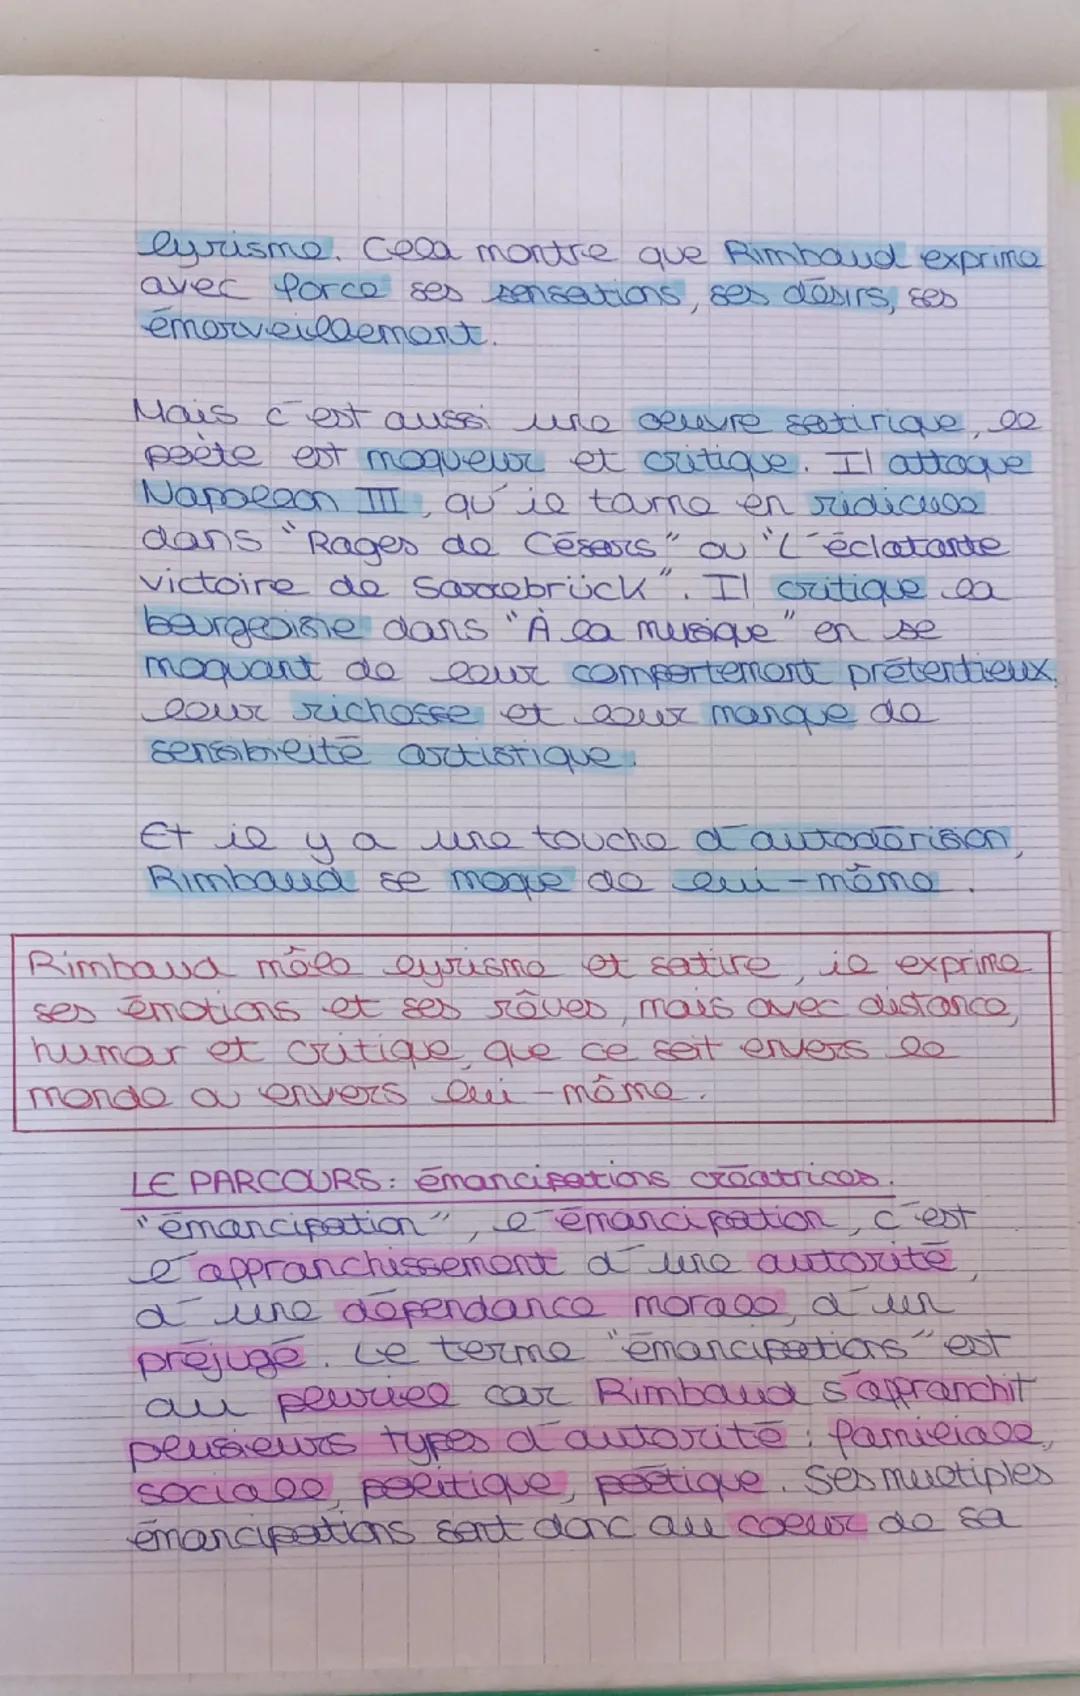 lyrisme. Cela montre que Rimbaud exprime
avec force ses sensations, ses désirs, ses
émerveillement.
Mais c'est aussi une oeuvre satirique, le
poète est moqueur et critique. Il attaque
Napoléon III, qu'il tourne en ridicule
dans "Rages de Césars" ou "L'éclatante
victoire de Sarrebrück". Il critique la
bourgeoisie dans "À la musique" en se
moquant de leur comportement prétentieux,
leur richesse et leur manque de
sensibilité artistique.
Et il y a une touche d'autodérision,
Rimbaud se moque de lui-même.
Rimbaud mêle lyrisme et satire, il exprime
ses émotions et ses rêves, mais avec distance,
humour et critique, que ce soit envers le
monde ou envers lui-même.
LE PARCOURS: émancipations créatrices.
"émancipation", l'émancipation, c'est
l'affranchissement d'une autorité,
d'une dépendance morale, d'un
préjugé. Le terme "émancipations" est
au pluriel car Rimbaud s'affranchit
plusieurs types d'autorité: familiale,
sociale, politique, poétique. Ses multiples
émancipations sont donc au coeur de sa